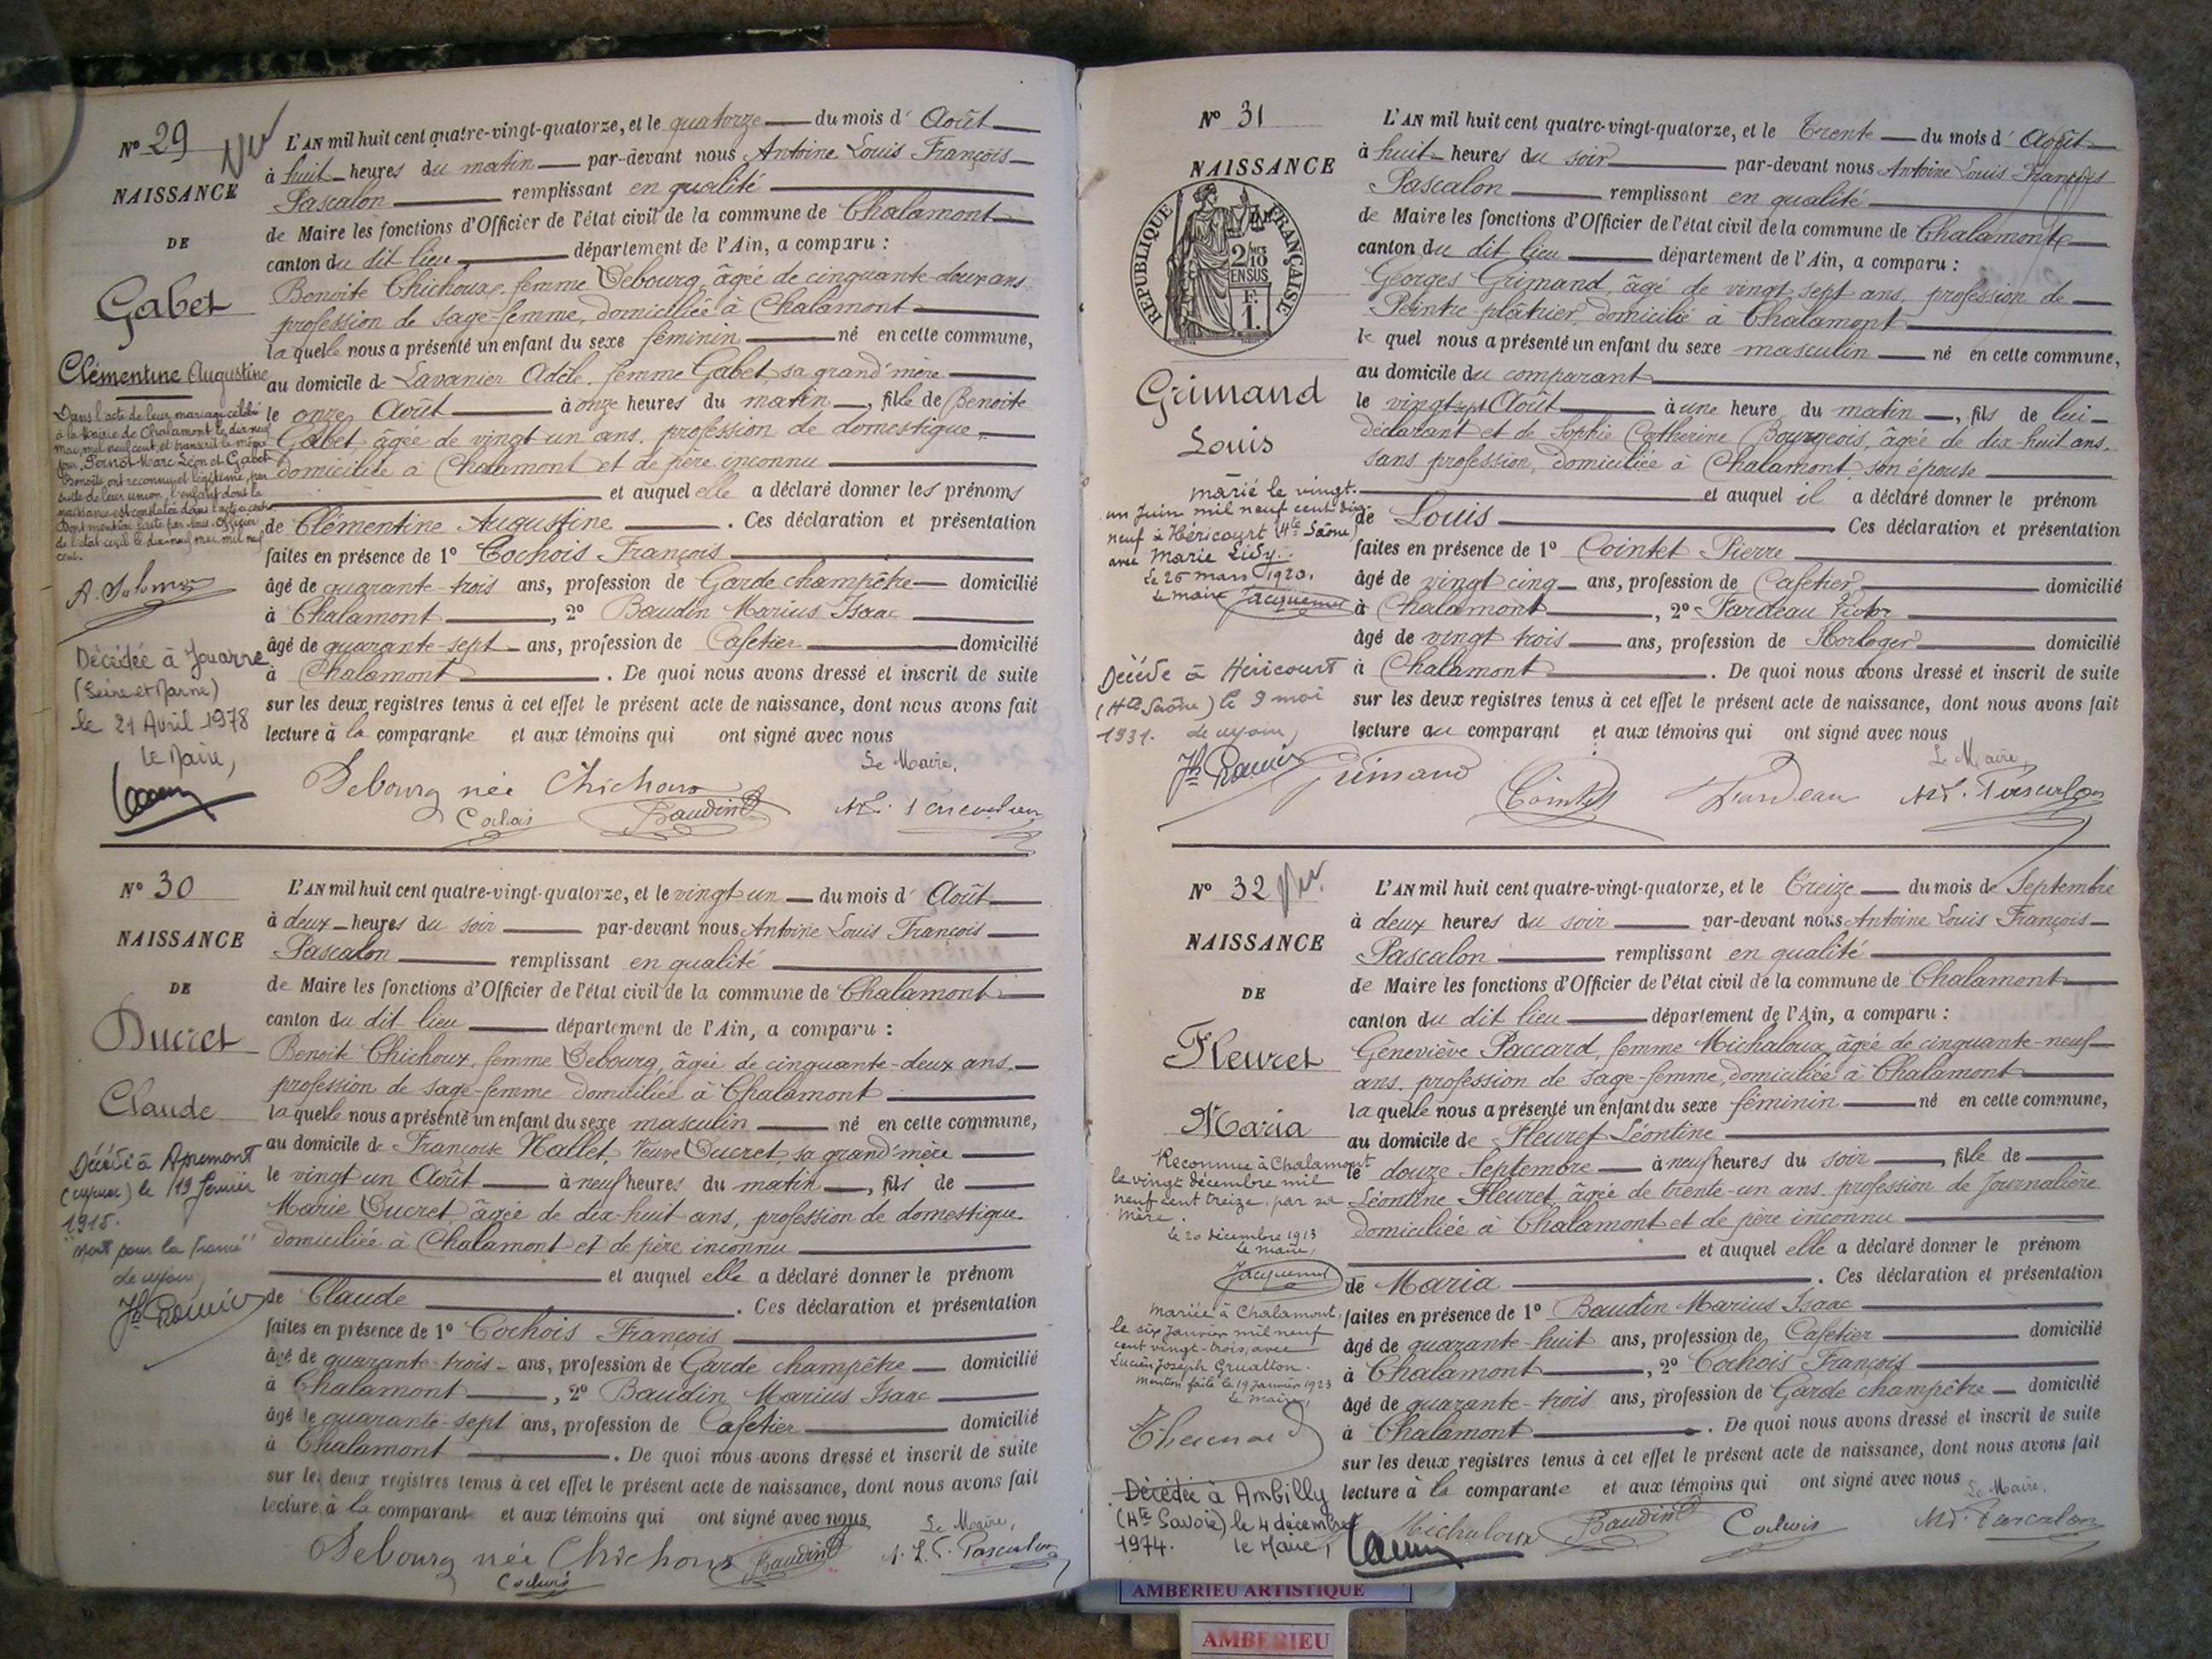 Nº 29
Vu
NAISSANCE
DE
Gabet
Clémentine Augustine
Dans l'acte de leur mariage célébré
à la Mairie de Chalamont le dix neuf
Mai, mil neuf cent, et transcrit le même
jour, Pernot Marc Léon et Gabet
Benoîte, ont reconnu et légitimé, par
suite de leur union, l'enfant dont la
naissance est constatée dans l'acte ci-contre.
Dont mention faite par Nous, Officier
de l'état civil le dix-neuf mai mil neuf
cent.
Décédée à Jouarre
(Seine et Marne)
le 21 Avril 1978
Le Maire,
L'AN mil huit cent quatre-vingt-quatorze, et le quatorze du mois d' Août
à huit heures du matin par-devant nous Antoine Louis François
Pascalon remplissant en qualité
de Maire les fonctions d'Officier de l'état civil de la commune de Chalamont
canton du dit lieu département de l'Ain, a comparu :
Benoite Chichoux, femme Debourg, âgée de cinquante-deux ans
profession de sage-femme, domiciliée à Chalamont
laquelle nous a présenté un enfant du sexe féminin né en cette commune,
au domicile de Lavanier Adèle, femme Gabet, sa grand'mère
le onze Août à onze heures du matin, fille de Benoite
Gabet, âgée de vingt un ans, profession de domestique,
domiciliée à Chalamont et de père inconnu
et auquel elle a déclaré donner les prénoms
de Clémentine Augustine. Ces déclaration et présentation
faites en présence de 1º Cochois François
âgé de quarante-trois ans, profession de Garde champêtre domicilié
à Chalamont, 2º Baudin Marius Isaac
âgé de quarante-sept ans, profession de Cafetier domicilié
à Chalamont. De quoi nous avons dressé et inscrit de suite
sur les deux registres tenus à cet effet le présent acte de naissance, dont nous avons fait
lecture à la comparante et aux témoins qui ont signé avec nous
Le Maire,
Debourg née Chichoux
Cochois Baudin
Nº 30
NAISSANCE
DE
Ducret
Claude
Décédé à Apremont
le 19 février
1915.
"Mort pour la France"
L'AN mil huit cent quatre-vingt-quatorze, et le vingt un du mois d' Août
à deux heures du soir par-devant nous Antoine Louis François
Pascalon remplissant en qualité
de Maire les fonctions d'Officier de l'état civil de la commune de Chalamont
canton du dit lieu département de l'Ain, a comparu :
Benoite Chichoux, femme Debourg, âgée de cinquante-deux ans,
profession de sage-femme domiciliée à Chalamont
laquelle nous a présenté un enfant du sexe masculin né en cette commune,
au domicile de Françoise Hallet, Veuve Ducret, sa grand'mère
le vingt un Août à neuf heures du matin, fils de
Marie Ducret, âgée de dix-huit ans, profession de domestique
domiciliée à Chalamont et de père inconnu
et auquel elle a déclaré donner le prénom
de Claude. Ces déclaration et présentation
faites en présence de 1º Cochois François
âgé de quarante-trois ans, profession de Garde champêtre domicilié
à Chalamont, 2º Baudin Marius Isaac
âgé de quarante-sept ans, profession de Cafetier domicilié
à Chalamont. De quoi nous avons dressé et inscrit de suite
sur les deux registres tenus à cet effet le présent acte de naissance, dont nous avons fait
lecture à la comparante et aux témoins qui ont signé avec nous
Le Maire,
Debourg née Chichoux Baudin A. L. F. Pascalon
Cochois
Nº 31
NAISSANCE
DE
RÉPUBLIQUE FRANÇAISE
2/10 EN SUS
F. 1.
Grimand
Louis
marié le vingt-
un Juin mil neuf cent dix-
neuf à Héricourt (Hte Saône)
avec Marie Lidy.
Le 26 mars 1920.
Le maire Jacquemet
Décédé à Héricourt
(Hte Saône) le 9 mai
1931.
L'AN mil huit cent quatre-vingt-quatorze, et le Trente du mois d' Août
à huit heures du soir par-devant nous Antoine Louis François
Pascalon remplissant en qualité
de Maire les fonctions d'Officier de l'état civil de la commune de Chalamont
canton du dit lieu département de l'Ain, a comparu :
Georges Grimand, âgé de vingt sept ans, profession de
Peintre-plâtrier, domicilié à Chalamont
lequel nous a présenté un enfant du sexe masculin né en cette commune,
au domicile du comparant
le vingt sept Août à une heure du matin, fils de lui-
déclarant et de Sophie Catherine Bourgeois, âgée de dix-huit ans,
sans profession, domiciliée à Chalamont, son épouse
et auquel il a déclaré donner le prénom
de Louis Ces déclaration et présentation
faites en présence de 1º Cointet Pierre
âgé de vingt cinq ans, profession de Cafetier domicilié
à Chalamont, 2º Fardeau Victor
âgé de vingt trois ans, profession de Horloger domicilié
à Chalamont. De quoi nous avons dressé et inscrit de suite
sur les deux registres tenus à cet effet le présent acte de naissance, dont nous avons fait
lecture au comparant et aux témoins qui ont signé avec nous
Le Maire,
Grimand Cointet Fardeau Pascalon
Nº 32
Vu
NAISSANCE
DE
Fleuret
Maria
Reconnue à Chalamont
le vingt décembre mil
neuf cent treize, par sa
mère.
le 20 décembre 1913
Le maire,
Jacquemet
Mariée à Chalamont,
le six Janvier mil neuf
cent vingt-trois, avec
Lucien Joseph Gruatton.
Mention faite le 19 Janvier 1923
Le maire,
Décédée à Ambilly
(Hte Savoie) le 4 décembre
1974. le Maire,
L'AN mil huit cent quatre-vingt-quatorze, et le Treize du mois de Septembre
à deux heures du soir par-devant nous Antoine Louis François
Pascalon remplissant en qualité
de Maire les fonctions d'Officier de l'état civil de la commune de Chalamont
canton du dit lieu département de l'Ain, a comparu :
Geneviève Paccard, femme Michaloux, âgée de cinquante-neuf
ans, profession de sage-femme, domiciliée à Chalamont
laquelle nous a présenté un enfant du sexe féminin né en cette commune,
au domicile de Fleuret Léontine
le douze Septembre à neuf heures du soir, fille de
Léontine Fleuret, âgée de trente-un ans, profession de Journalière
domiciliée à Chalamont et de père inconnu
et auquel elle a déclaré donner le prénom
de Maria. Ces déclaration et présentation
faites en présence de 1º Baudin Marius Isaac
âgé de quarante-huit ans, profession de Cafetier domicilié
à Chalamont, 2º Cochois François
âgé de quarante-trois ans, profession de Garde champêtre domicilié
à Chalamont. De quoi nous avons dressé et inscrit de suite
sur les deux registres tenus à cet effet le présent acte de naissance, dont nous avons fait
lecture à la comparante et aux témoins qui ont signé avec nous
Le Maire,
Michaloux Baudin Cochois Pascalon
AMBERIEU ARTISTIQUE
AMBERIEU